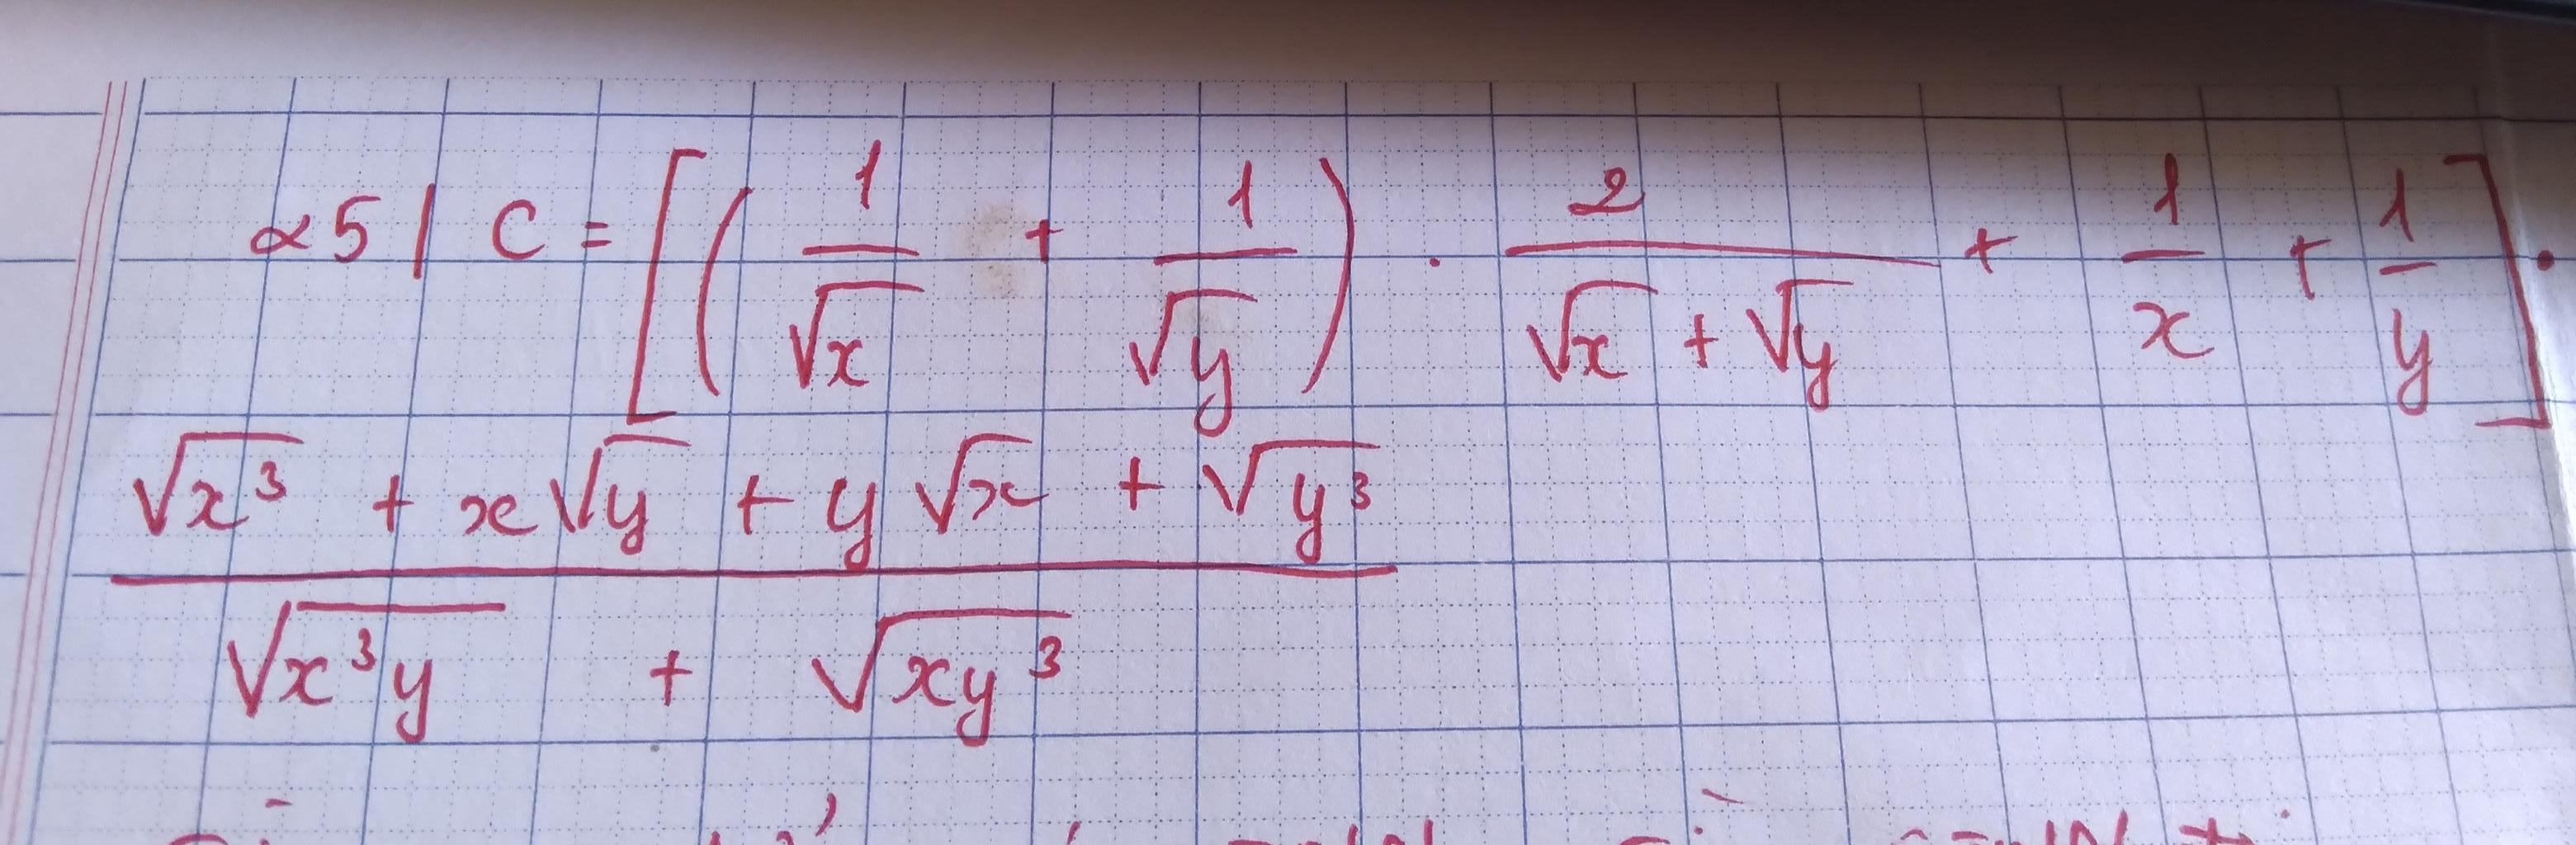 α5| C = [(1/√x + 1/√y) . 2/(√x + √y) + 1/x + 1/y] .
(√x³ + x√y + y√x + √y³)/(√x³y + √xy³)